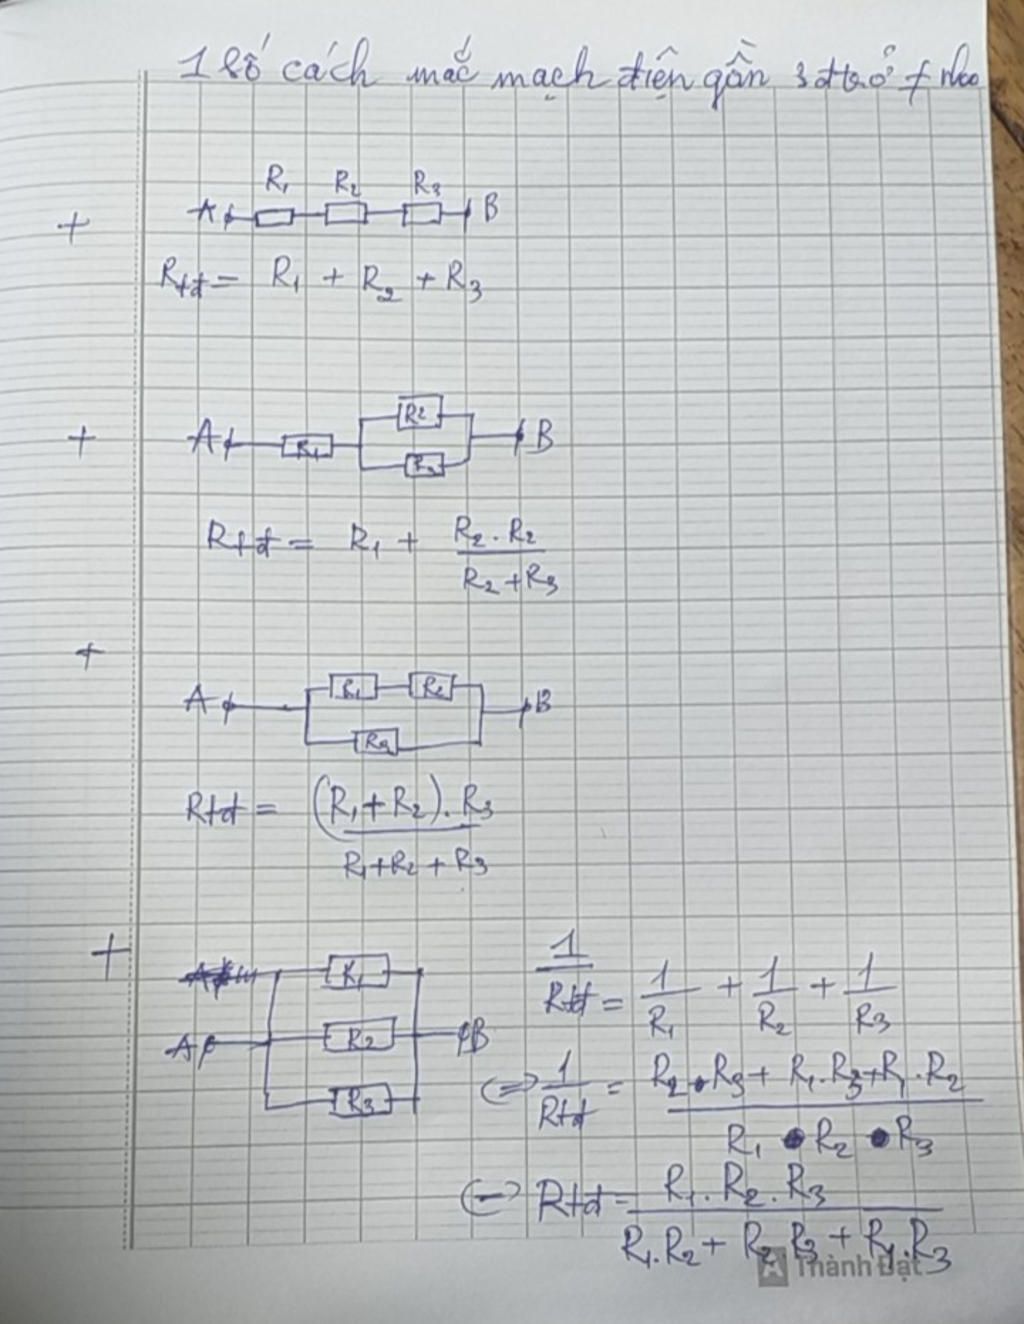 1 số cách mắc mạch điện gồm 3 đtrở ≠ nhau
R₁ R₂ R₃
+ A B
Rtđ = R₁ + R₂ + R₃
+ A R₁ R₂ R₃ B
Rtđ = R₁ + R₂ . R₂ / R₂ + R₃
+
A R₁ R₂ B
R₃
Rtđ = (R₁ + R₂) . R₃ / R₁ + R₂ + R₃
+ R₁
A R₂ B
R₃
1 / Rtđ = 1 / R₁ + 1 / R₂ + 1 / R₃
<=> 1 / Rtđ = R₂ . R₃ + R₁ . R₃ + R₁ . R₂ / R₁ . R₂ . R₃
<=> Rtđ = R₁ . R₂ . R₃ / R₁ . R₂ + R₂ . R₃ + R₁ . R₃
Thành Đạt